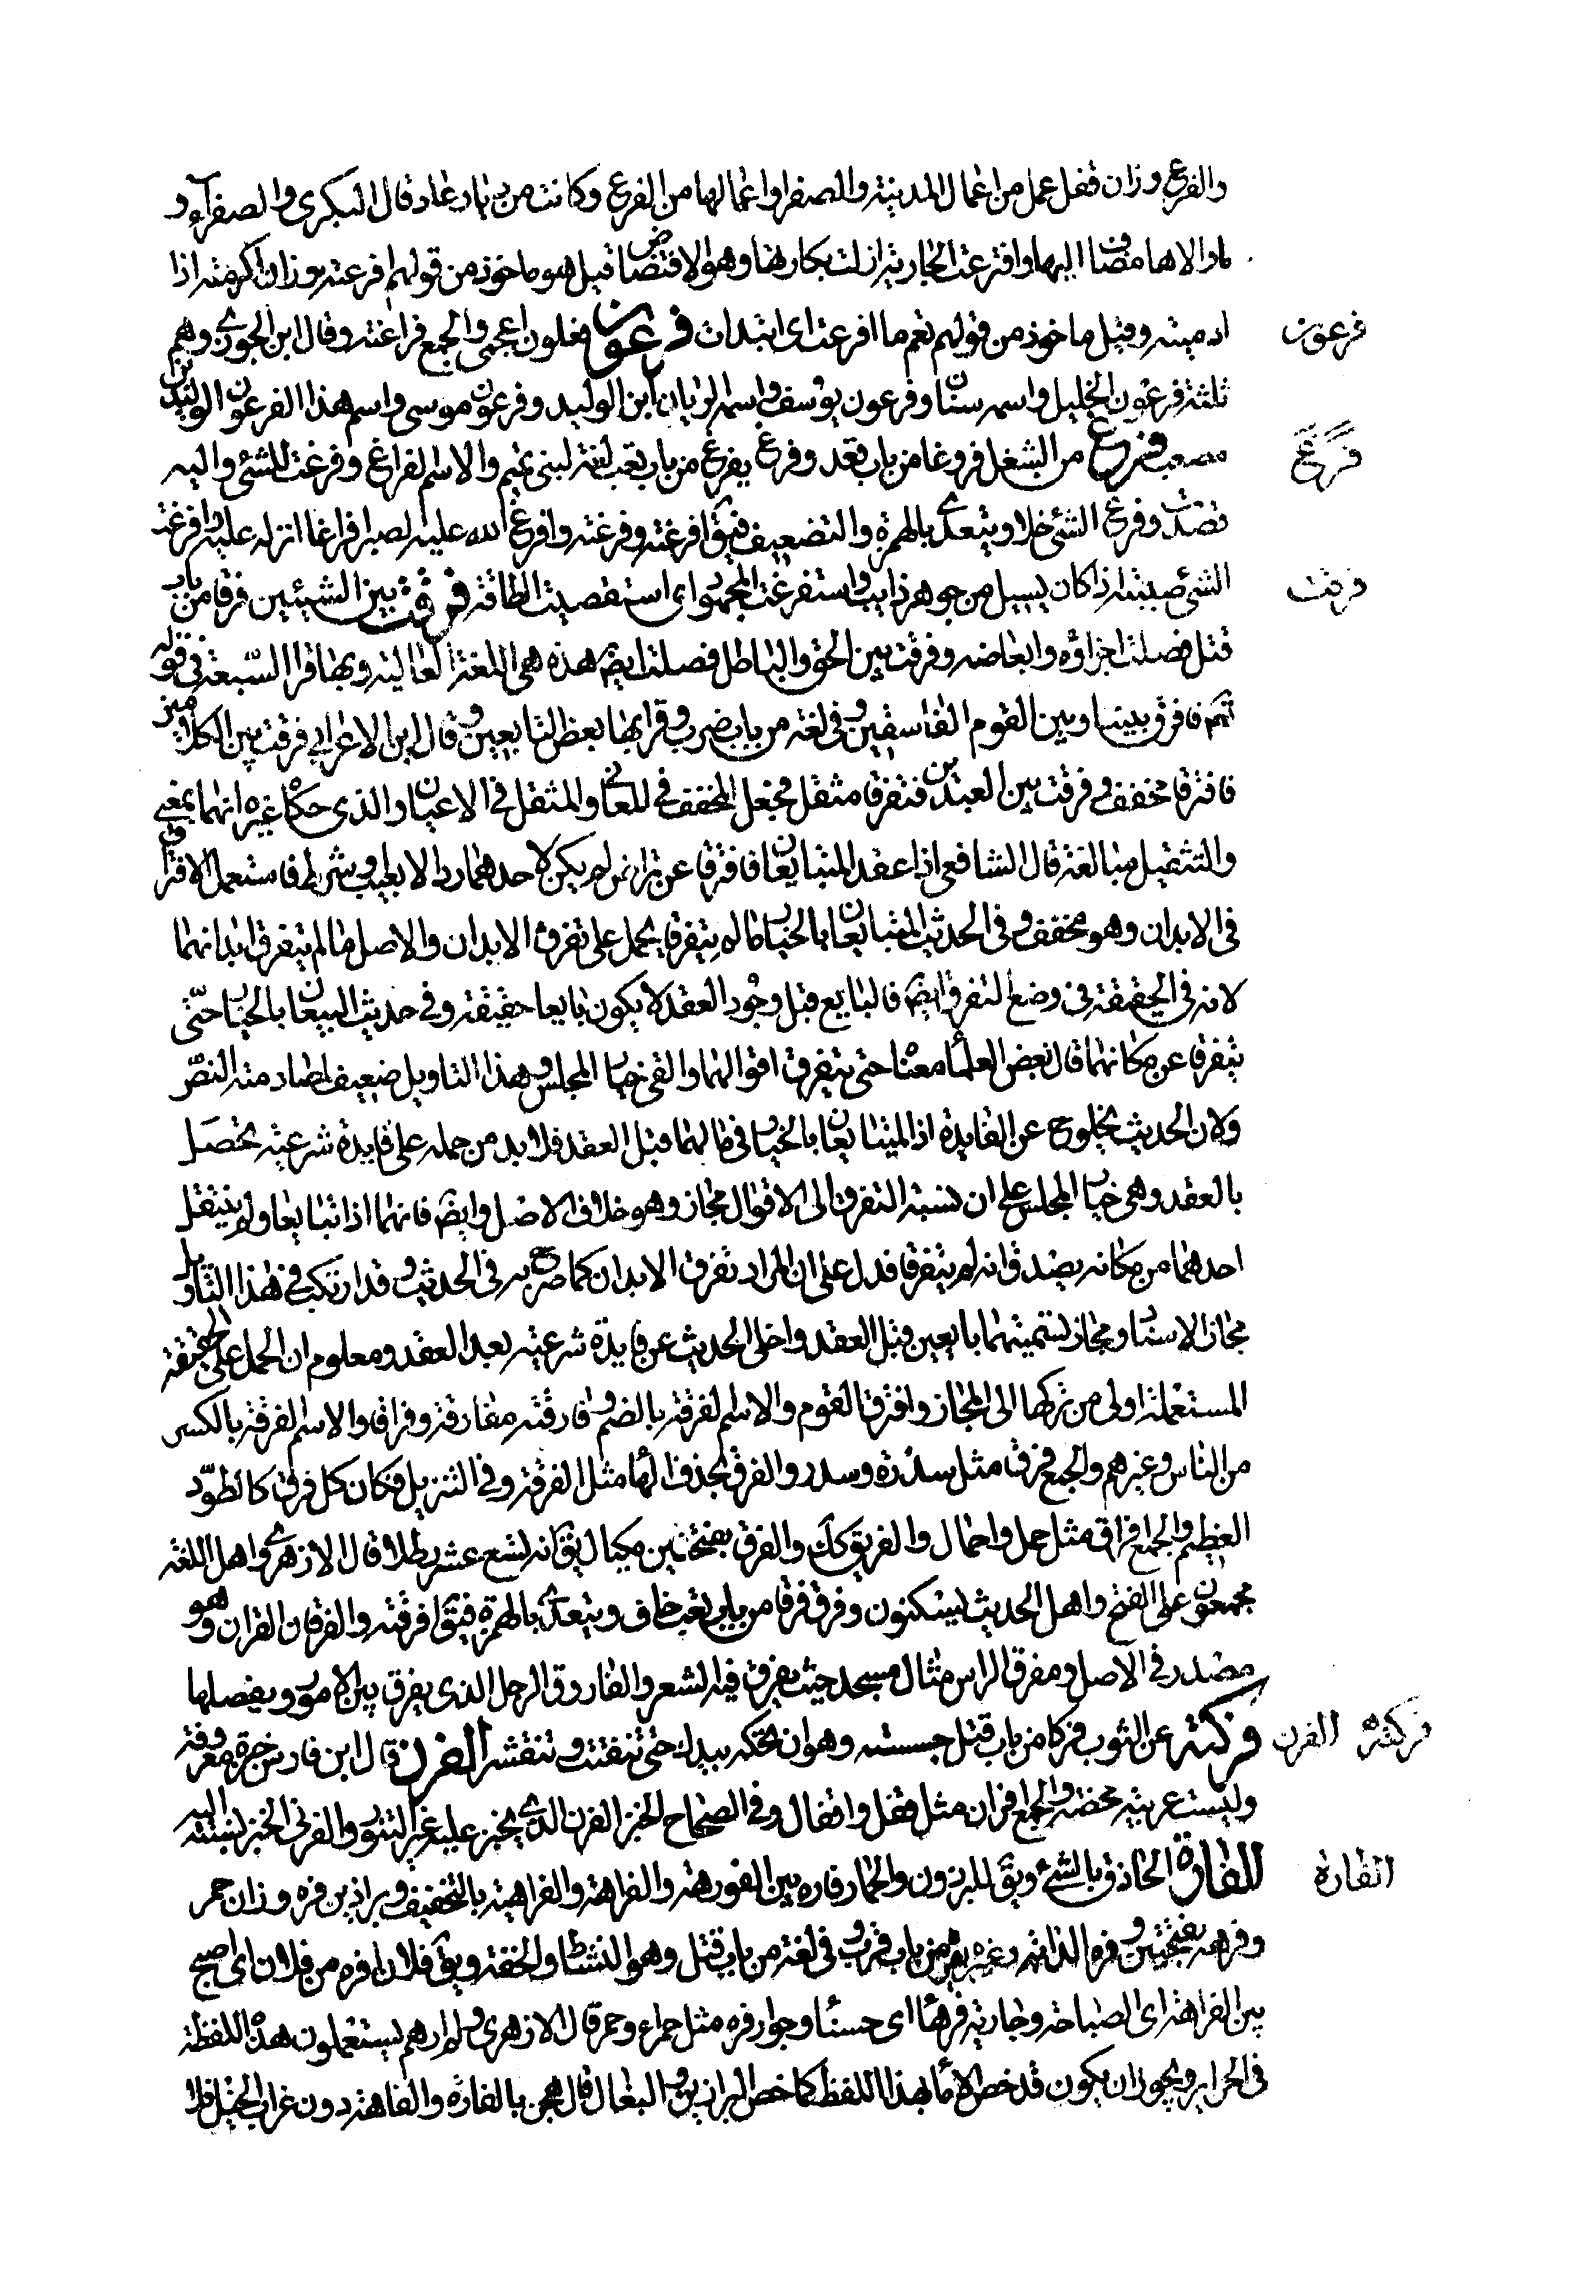 والفرع وزان قفل عمل من اعمال المدينة والصفرا واعمالها من الفرع وكانت من ديار عاد قال البكرى والصفرآء و
مادالاها مضافا اليها وافترعت الجارية ازلت بكارتها وهو الافتضاض قيل هو ماخوذ من قولهم افرعته وزان اكرمته اذا
ادميته وقيل ماخوذ من قولهم نعم ما افرعت اى ابتدات فرعون فعلون اعجمى والجمع فراعنة وقال ابن الجوزى وهم
فرعون
ثلثة فرعون الخليل واسمه سنان وفرعون يوسف واسمه الريان ابن الوليد وفرعون موسى واسم هذا الفرعون الوليد بن
مصعب فرغ من الشغل فروغا من باب قعد وفرغ يفرغ من باب تعب لغة لبنى تميم والاسم الفراغ وفرغت للشئ واليه
فرغ
قصدت وفرغ الشئ خلا ويتعدى بالهمزة والتضعيف فيق افرغته وفرغته وافرغ الله عليه الصبر افراغا انزله عليه وافرغت
الشئ صببته اذا كان يسيل من جوهر ذايب واستفرغت المجهود اى استقصيت الطاقة فرقت بين الشيئين فرقا من باب
فرقت
قتل فصلت اجزاؤه وابعاضه وفرقت بين الحق والباطل فصلت ايضم هذه هى اللغة العالية وبها قرا السبعة فى قوله
تم فافرق بيننا وبين القوم الفاسقين وفى لغة من باب ضرب وقرا بها بعض التابعين وقال ابن الاعرابى فرقت بين الكلامين
فافترقا مخفف وفرقت بين العبدين فتفرقا مثقل فجعل المخفف فى المعانى والمثقل فى الاعيان والذى حكاه غيره انهما بمعنى
والتثقيل مبالغة قال الشافعى اذا عقد المتبايعان فافترقا عن تراض لم يكن لاحدهما رد الا بعيب وشرط فاستعمل الافتراق
فى الابدان وهو مخفف وفى الحديث المتبايعان بالخيار مالم يتفرقا يحمل على تفرق الابدان والاصل مالم يتفرق ابدانهما
لانه فى الحقيقة فى وضع التفرق ايضم فالبايع قبل وجود العقد لا يكون بايعا حقيقة وفى حديث البيعان بالخيار حتى
يتفرقا عن مكانهما قال بعض العلما معناه حتى يتفرق اقوالهما والغى خيار المجلس وهذا التاويل ضعيف لمصادمته النص
ولان الحديث يخلو ح عن الفايدة اذ المتبايعان بالخيار فى مالهما قبل العقد فلا بد من حمله على فايدة شرعية تحصل
بالعقد وهى خيار المجلس على ان نسبة التفرق الى الاقوال مجاز وهو خلاف الاصل وايضم فانهما اذا تبايعا ولم ينتقل
احدهما من مكانه يصدق انه لم يتفرقا فدل على ان المراد تفرق الابدان كما صرح به فى الحديث وقد ارتكب فى هذا التاويل
مجاز الاسناد ومجاز تسميتهما بايعين قبل العقد واخلى الحديث عن فايدة شرعية بعد العقد ومعلوم ان الحمل على الحقيقة
المستعملة اولى من تركها الى المجاز وافترق القوم والاسم الفرقة بالضم وفارقته مفارقة وفراقا والاسم الفرقة بالكسر
من الناس وغيرهم والجمع فرق مثل سدرة وسدر والفرق بحذف الها مثل الفرقة وفى التنزيل فكان كل فرق كالطود
العظيم والجمع افراق مثل حمل واحمال والفريق كك والفرق بفتحتين مكيال يق انه تسع عشر رطلا قال الازهرى واهل اللغة
مجمعون على الفتح واهل الحديث يسكنون وفرق فرقا من باب تعب خاف ويتعدى بالهمزة فيق افرقته والفرقان القران وهو
مصدر فى الاصل ومفرق الراس مثال مسجد حيث يفرق فيه الشعر والفاروق الرجل الذى يفرق بين الامور ويفصلها
فركته عن الثوب فركا من باب قتل وهو ان تحكه بيدك حتى تتفتت وتنقشر الفرن قال ابن فارس خبزة معروفة
فركته الفرن
وليست عربية محضة والجمع افران مثل قفل واقفال وفى الصحاح الخبز الفرن الذى يخبز عليه غير التنور والفرنى الخبز نسبته اليه
الفارة الحاذق بالشئ ويق للبرذون والحمار فاره بين الفروهة والفراهة والفراهية بالتخفيف وبراذين فره وزان حمر
الفارة
وفرهة بفتحتين وفره الدابة وغيره يفره من باب قرب وفى لغة من باب قتل وهو النشاط والخفة ويق فلان افره من فلان اى اصبح
بين الفراهة اى الصباحة وجارية فرها اى حسنا وجوار فره مثل حمراء وحمر قال الازهرى ولم ارهم يستعملون هذه اللفظة
فى الحراير ويجوز ان يكون قد خص الاما بهذا اللفظ كما خص البراذين والبغال والهجن بالفاره والفاهة دون عراب الخيل فلا